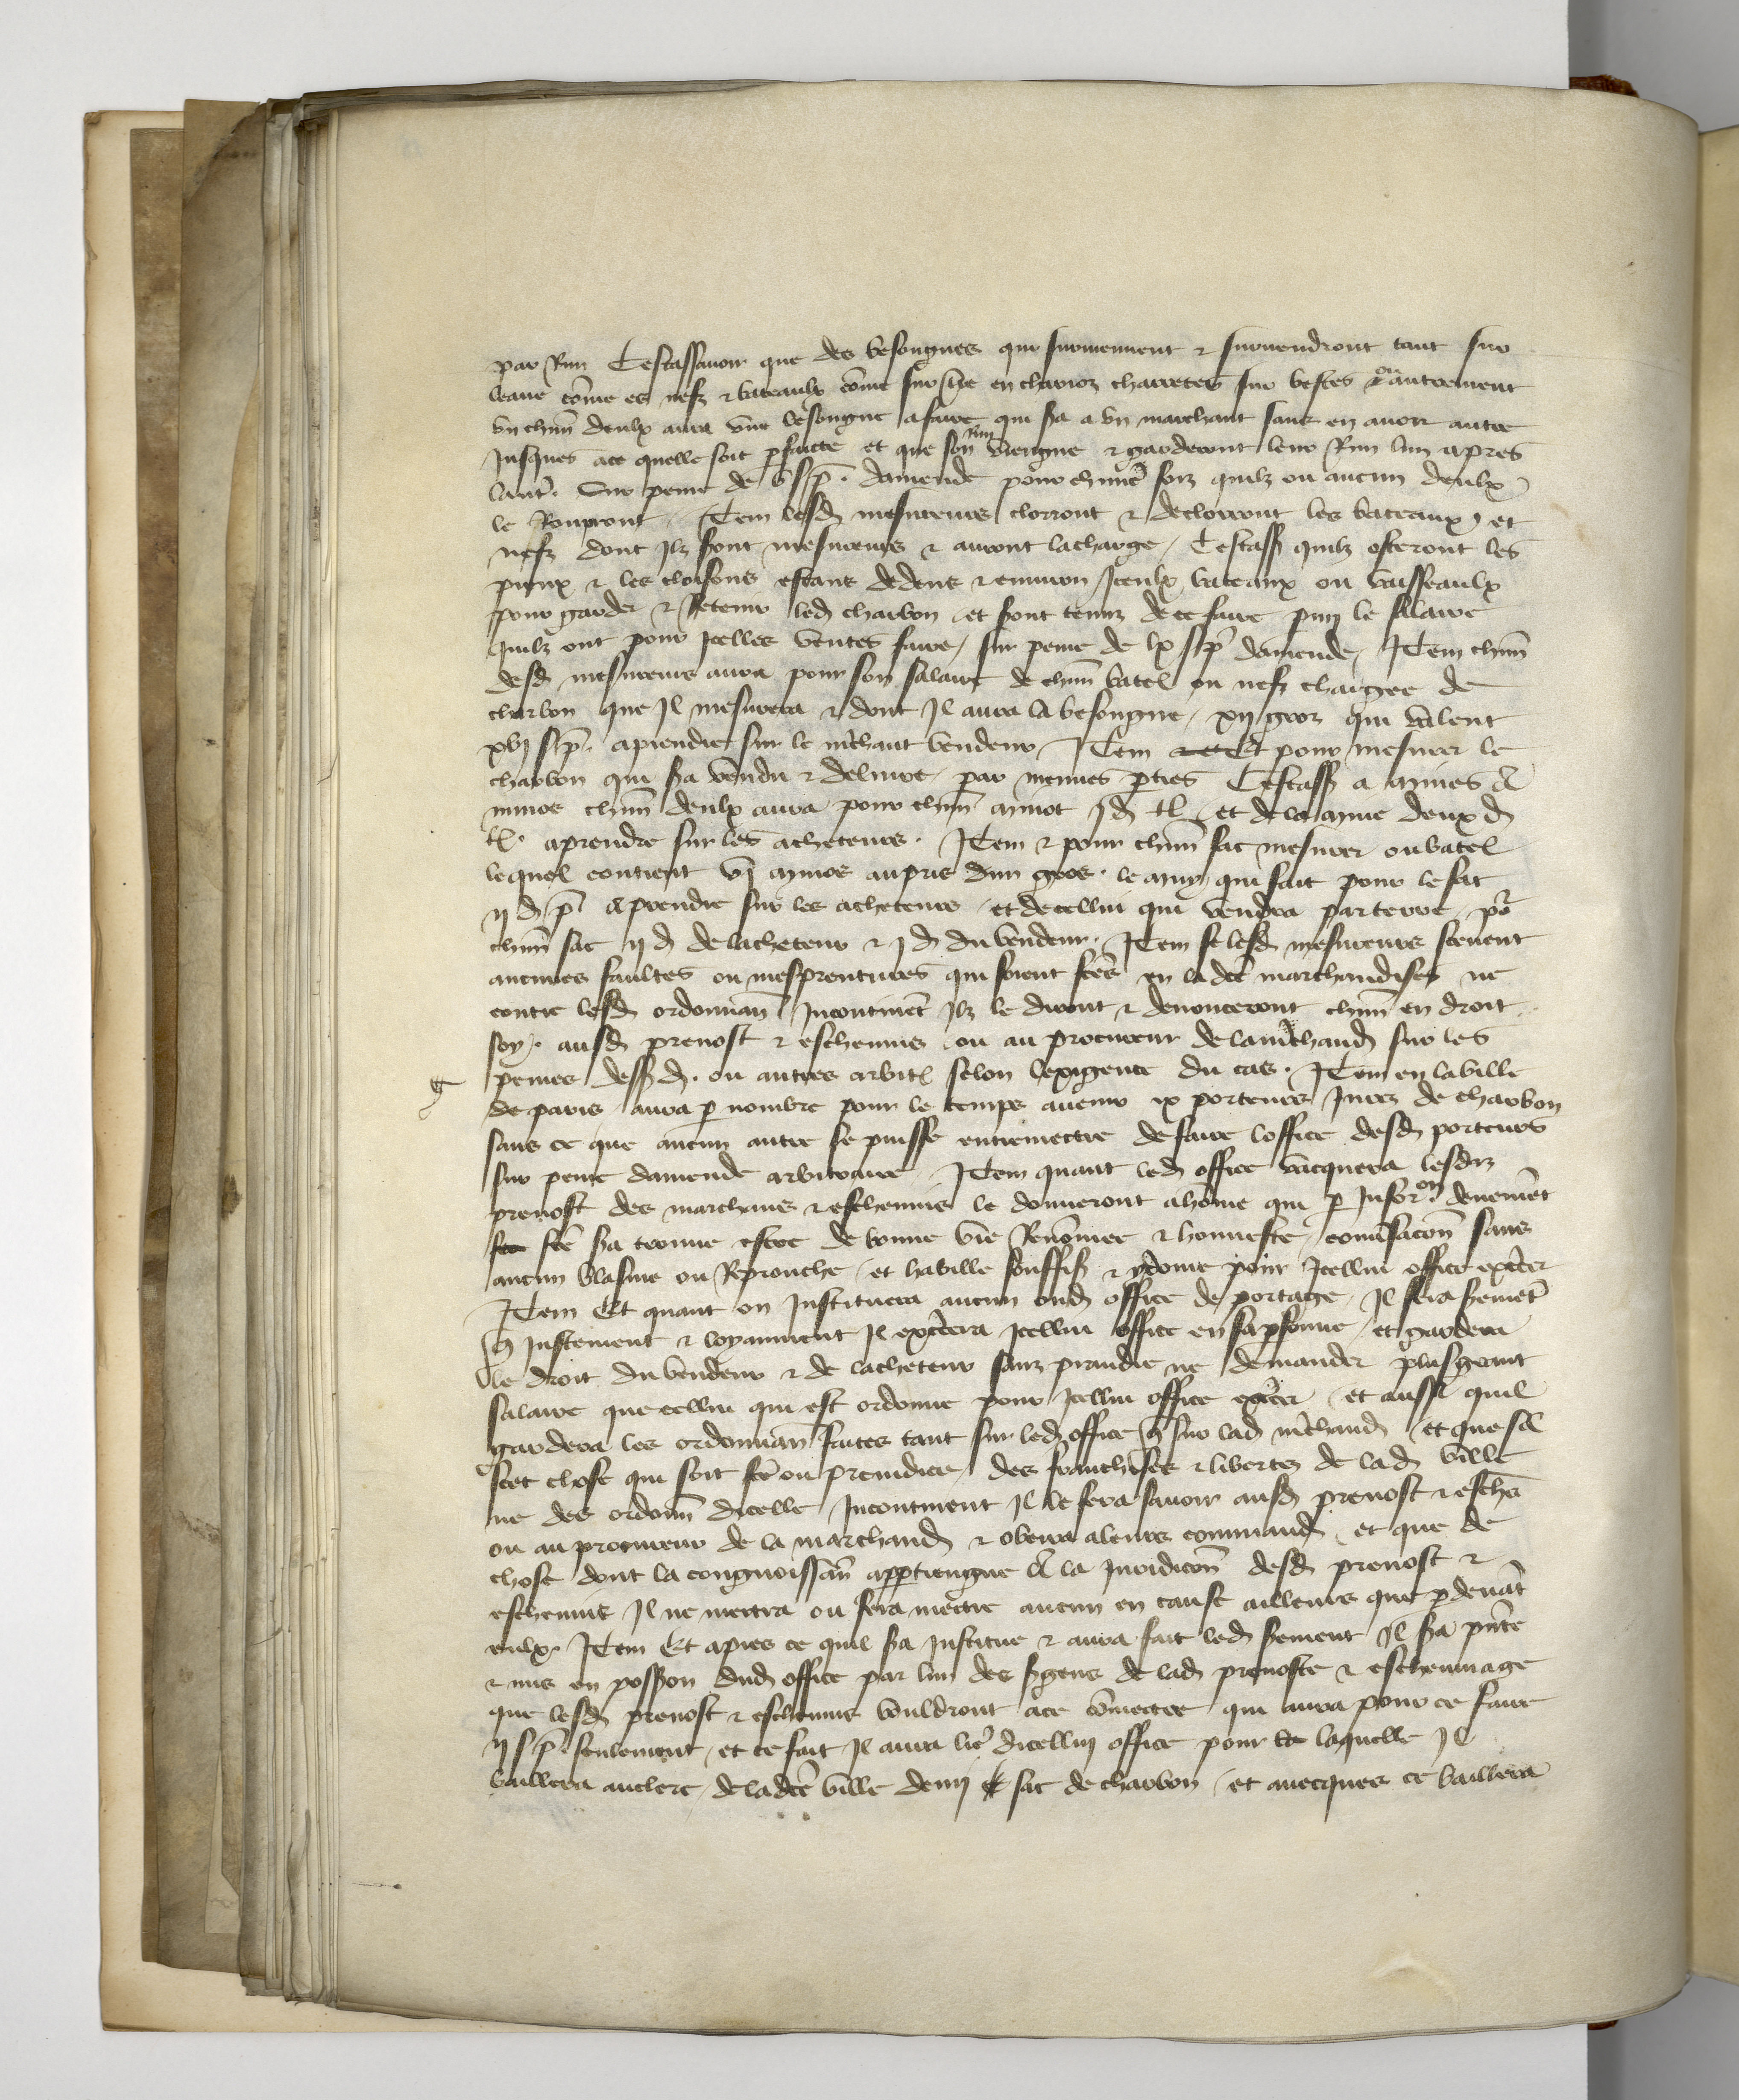 par Run Cestassavoir que des besongnes qui surviennent & survendront tant sur
leaue cōme es nefz & bateaulx cōme sur t̄re en charioz charretes sur bestes & ou autrement
vn chūn deulx aura vne besongne afaire qui sa a vn marchant sans en auoir autre
Jusques ace quelle soit p̱faicte et que son Run viengne & garderont leur Run lun apres
laut̄. Sur peine de v s̱ p̄. damende pour chūne foiz quilz ou aucun deulx
le Ronpront. Jtem lesd mesureurs clorront & declorront les bateaux, et
nefz dont Jlz sont mesureurs & auront lacharge, Cestass quilz osteront les
pieux & les cloisons estans dedens & enuiron Jceulx bateaux ou vaisseaulx
pour garder & Retenir led charbon et sont tenuz dece faire pmy le salaire
quilz ont pour Jcelles ventes faire, sur peine de lx s p̄ damende, Jtem chūn
desd mesureurs aura pour son salaire de chūn batel ou nefz chargee de
charbon que Jl mesurera & dont Jl aura la besongne, xij groz qui valent
xvj s p̄. aprendre sur le m̄chant vendeur, Jtem Et pour mesurer le
charbon qui sa vendu & deliure par menues p̱ties Cestass a mines &
minos chūn deulx aura pour chūn minot j d tl et dela mine deux d
tl. aprendre sur les acheteurs. Jtem & pour chūn sac mesurer oubatel
lequel contient vj minos aupris dun gros. le muy, qui fait pour le sac
ij d p̄ Aprendre sur les acheteurs et decellui qui vendra parterre, po͂
chūn sac ij d delacheteur & j d du vendeur. Jtem se lesd mesureurs sceuent
aucunes faultes ou mesprentures qui soient fc̄es en la dc̄e marchandises ne
contre lesd ordonnan̄ Jncontinēt Jlz le diront & denonceront chūn en droit
soy. ausd preuost & escheuins ou au procureur de lam̄chand sur les
peines dessd. ou autres arbit̄ selon lexigence du cas. Jtem en laville
de paris aura p̱ nombre pour le temps auenir ix porteurs Jurez de charbon
sans ce que aucun autre se puisse entremectre de faire loffice desd porteurs
sur peine damende arbitraire. Jtem quant led office vacquera lesdiz
preuost des marchans & escheuins le donneront ahōme qui p̱ Jnforon deuemēt
fc̄e sa trouue estre de bonne vie Renōmee & honneste, conu̇sacōn sans
aucun blasme ou Reprouche, et habille souffis & ydoine pour Jcellui office exc̄er
Jtem Et quant on Jnstituera aucun oud office de portage, Jl fera sermēt
q̄ Justement & loyaument Jl exc̄era Jcellui office en sap̱sonne, et gardera
le droit du vendeur & de lacheteur sanz prandre ne demander plus grant
salaire que cellui qui est ordonne pour Jcellui office exc̄er et aussi quil
gardera les ordonnan̄ faites tant sur led office q̄ sur lad m̄chand, et que sil
scet chose qui soit fc̄e ou preiudice, des franchises & libertez de lad ville
ne des ordonn̄ dicelle, Jncontinent Jl le fera sauoir ausd preuost & esche̅
ou au procureur de la marchand & obeira aleurs command, et que de
chose dont la congnoissan̄ app̱tiengne A la Juridicōn desd preuost &
escheuins Jl ne mectra ou fera mectre aucun en cause ailleurs que p̱deuāt
eulx. Jtem Et apres ce quil sa Jnstitue & aura fait led serment Jl sa pn̄te
& mis en possion dud office par lun des sgens de lad preuoste & escheuinage
que lesd preuost & escheuins vouldront ace cōmectre qui aura pour ce faire
ij s p̄. seulement, et ce fait Jl aura lr̄e dicelluy office pour laquelle Jl
baillera auclerc deladc̄e ville demy sac de charbon, et auecques ce baillera